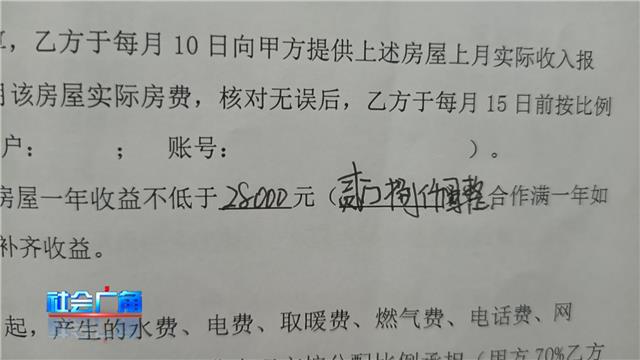 ，乙方于每月10日向甲方提供上述房屋上月实际收入报
该房屋实际房费，核对无误后，乙方于每月15日前按比例
户： ； 账号： ）。
房屋一年收益不低于28000元（贰万捌仟圆整合作满一年如
补齐收益。
社会广角
起，产生的水费、电费、取暖费、燃气费、电话费、网
分配比例承担（甲方70%乙方